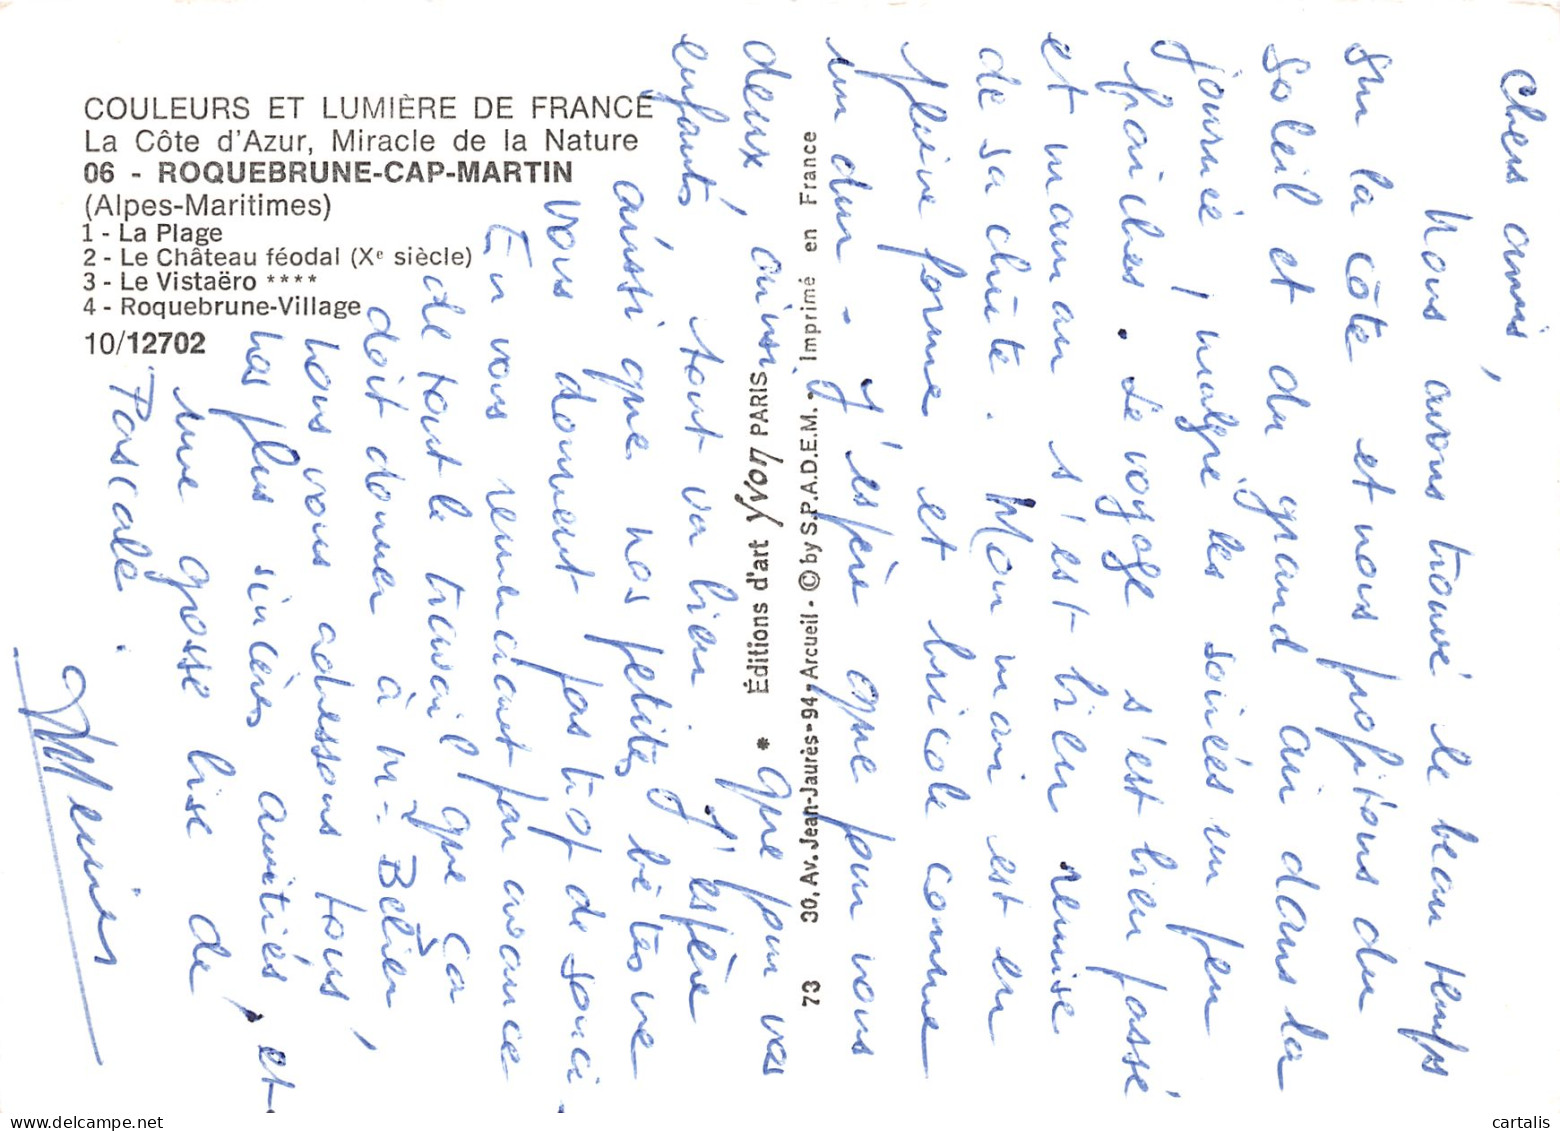 COULEURS ET LUMIÈRE DE FRANCE
La Côte d'Azur, Miracle de la Nature
06 - ROQUEBRUNE-CAP-MARTIN
(Alpes-Maritimes)
1 - La Plage
2 - Le Château féodal (Xe siècle)
3 - Le Vistaëro ****
4 - Roquebrune-Village
10/12702
Éditions d'art YVON PARIS
73 30, Av. Jean-Jaurès - 94, Arcueil - © by S.P.A.D.E.M. - Imprimé en France
Chers amis,
Nous avons trouvé le beau temps
sur la côte et nous profitons du
soleil et du grand air dans la
journée, malgré les soirées un peu
fraîches. Le voyage s'est bien passé
et maman s'est bien remise
de sa chute. Mon mari est en
pleine forme et bricole comme
un dur - J'espère que pour vous
deux, ainsi que pour vos
enfants tout va bien. J'espère
aussi que nos petites bêtes ne
vous donnent pas trop de souci
En vous remerciant par avance
de tout le travail que ça
doit donner à Mr Bélier,
nous vous adressons tous
nos plus sincères amitiés, et
une grosse bise de
Pascale.